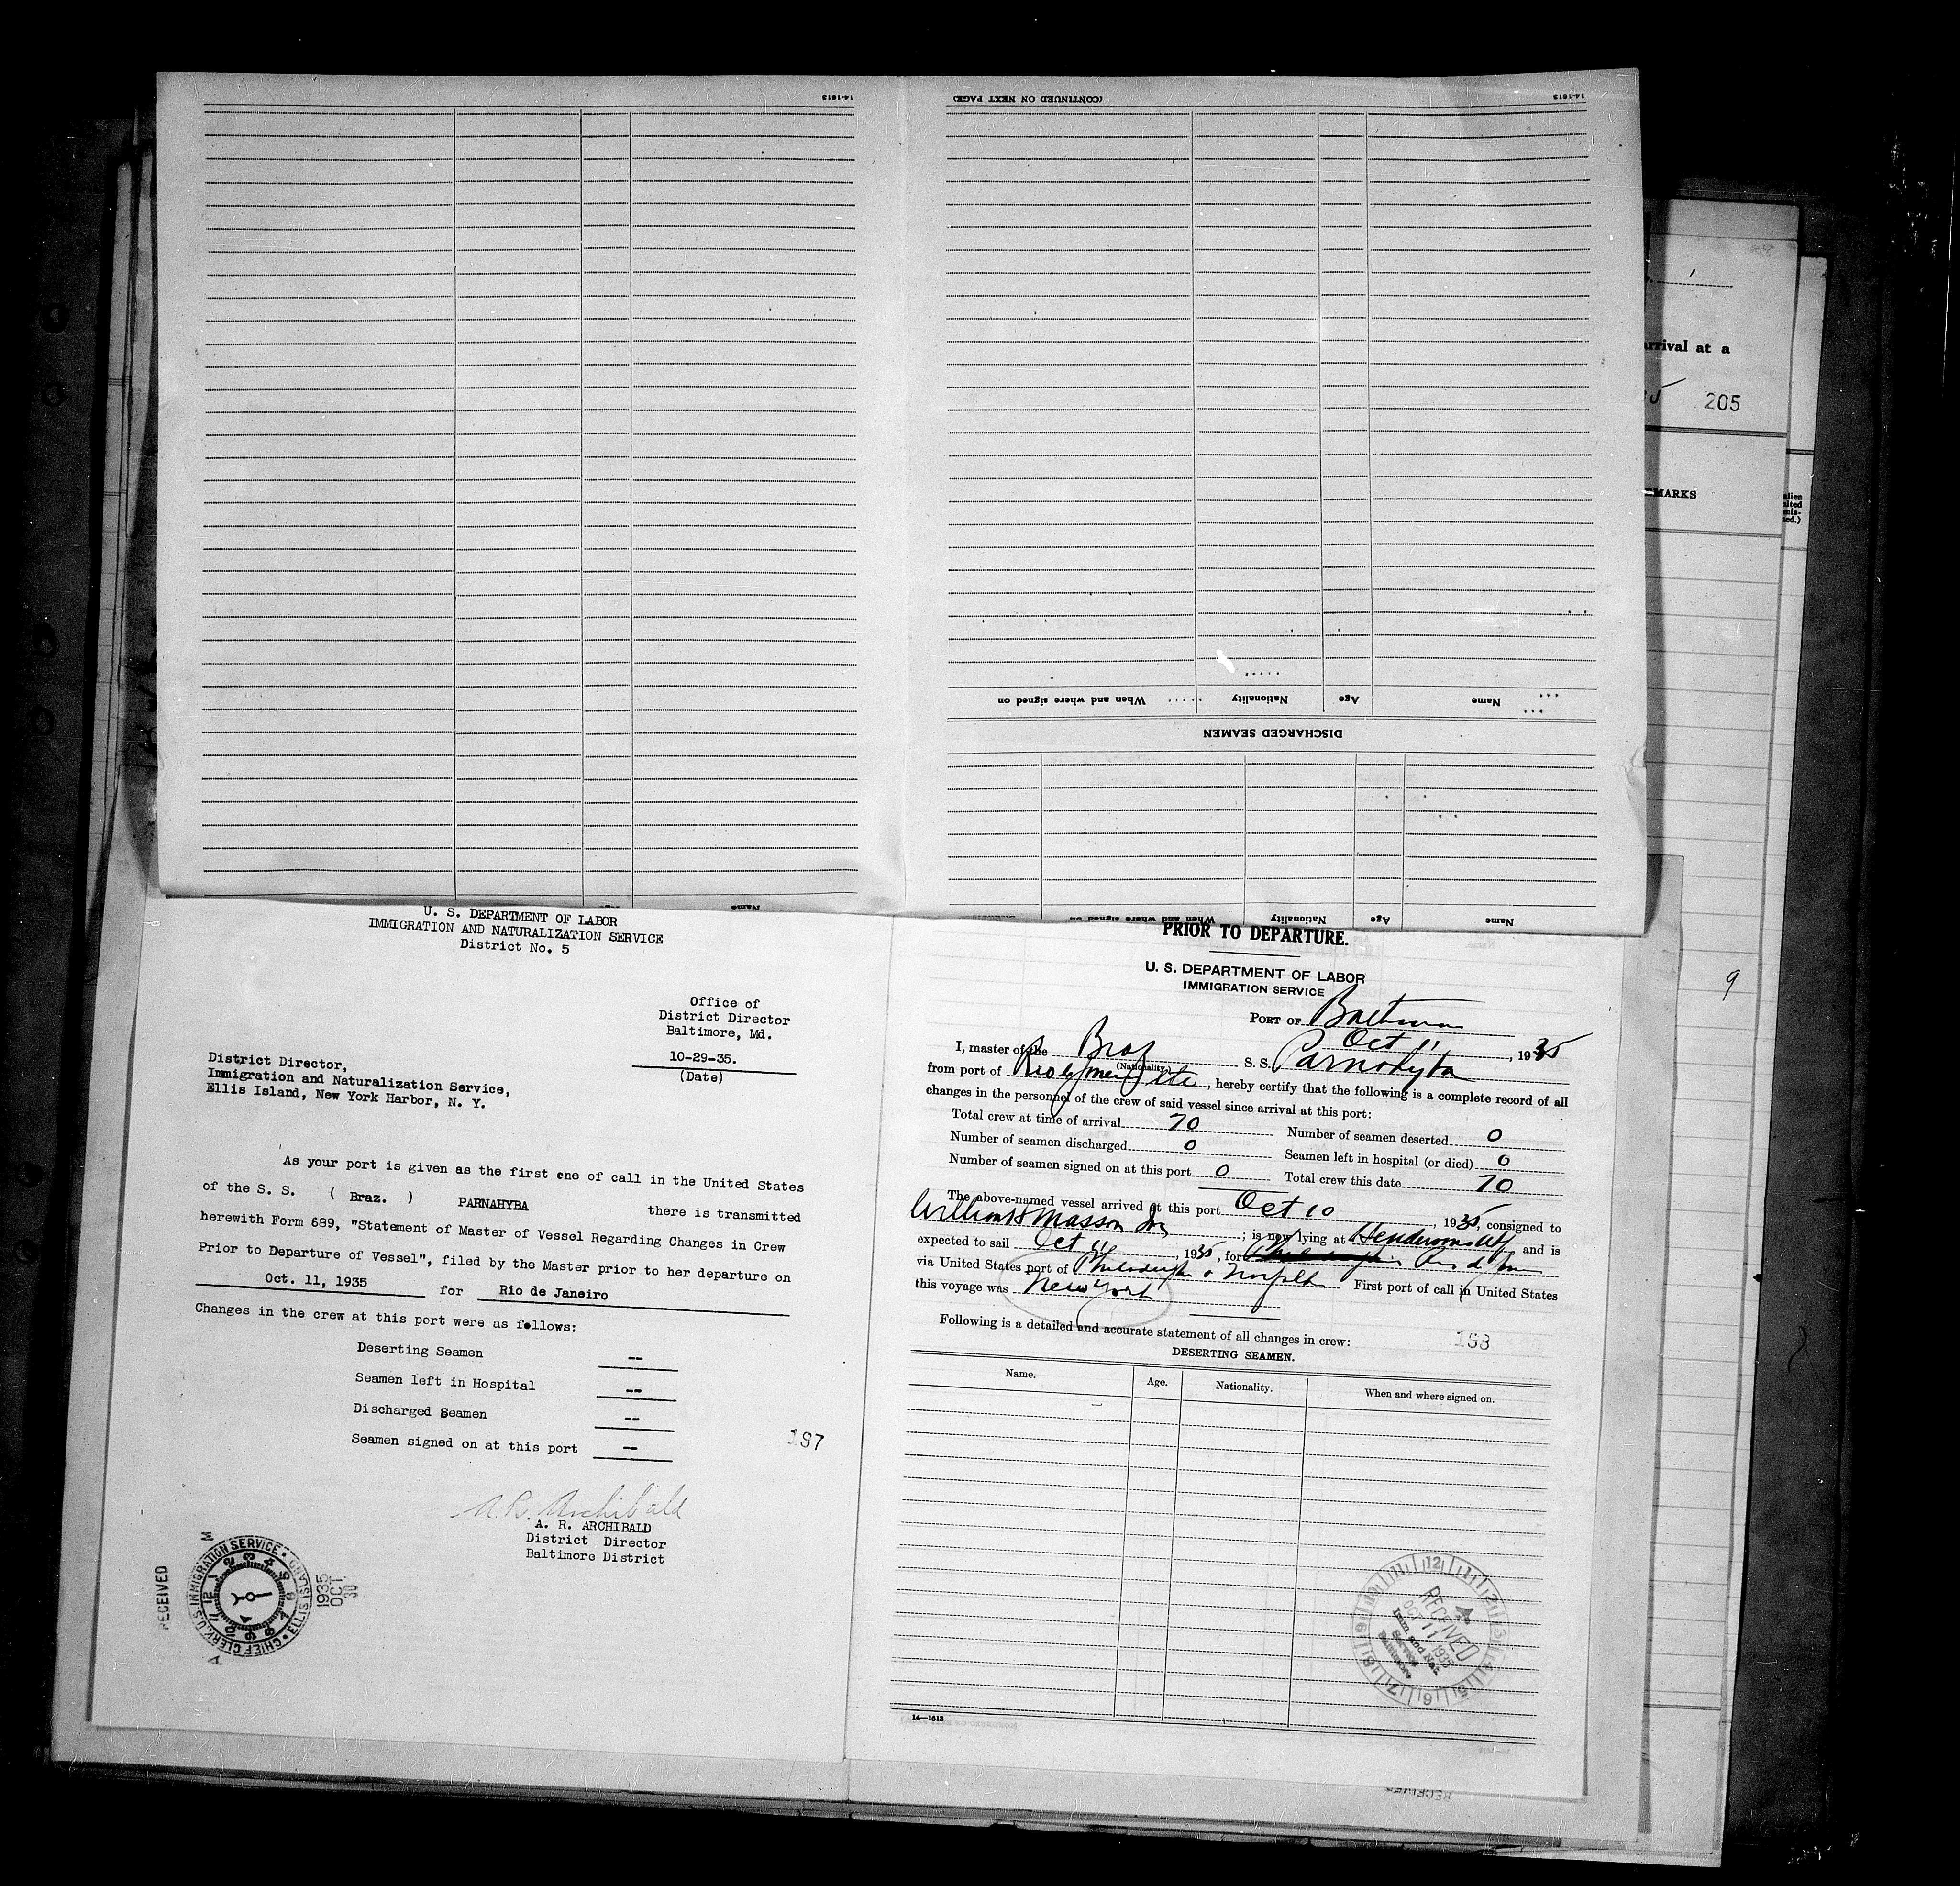 14-1613
(CONTINUED ON NEXT PAGE)
14-1613
Name
Age
Nationality
When and where signed on
DISCHARGED SEAMEN
Name
Age
Nationality
When and where signed on
Name
arrival at a
205
MARKS
alien
9
U. S. DEPARTMENT OF LABOR
IMMIGRATION AND NATURALIZATION SERVICE
District No. 5
Office of
District Director
Baltimore, Md.
10-29-35.
(Date)
District Director,
Immigration and Naturalization Service,
Ellis Island, New York Harbor, N. Y.
As your port is given as the first one of call in the United States
of the S. S. ( Braz. ) PARNAHYBA there is transmitted
herewith Form 689, "Statement of Master of Vessel Regarding Changes in Crew
Prior to Departure of Vessel", filed by the Master prior to her departure on
Oct. 11, 1935 for Rio de Janeiro
Changes in the crew at this port were as follows:
Deserting Seamen --
Seamen left in Hospital --
Discharged Seamen --
Seamen signed on at this port --
197
A. R. Archibald
A. R. ARCHIBALD
District Director
Baltimore District
RECEIVED
CHIEF CLERK, U.S. IMMIGRATION SERVICE • ELLIS ISLAND
1935
OCT
30
PRIOR TO DEPARTURE.
U. S. DEPARTMENT OF LABOR
IMMIGRATION SERVICE
PORT OF
Oct 11, 1935
I, master of the Braz (Nationality) S. S. Parnahyba
from port of , hereby certify that the following is a complete record of all
changes in the personnel of the crew of said vessel since arrival at this port:
Total crew at time of arrival 70 Number of seamen deserted 0
Number of seamen discharged 0 Seamen left in hospital (or died) 0
Number of seamen signed on at this port 0 Total crew this date 70
The above-named vessel arrived at this port Oct 10, 1935, consigned to
William H Masson ; is now lying at and is
expected to sail Oct 11, 1935, for
via United States port of Philadelphia + Norfolk First port of call in United States
this voyage was New York
Following is a detailed and accurate statement of all changes in crew: 198
DESERTING SEAMEN.
Name. Age. Nationality. When and where signed on.
RECEIVED
OCT 11 1935
Imm. and Nat.
Service
14—1613
RECEIVED